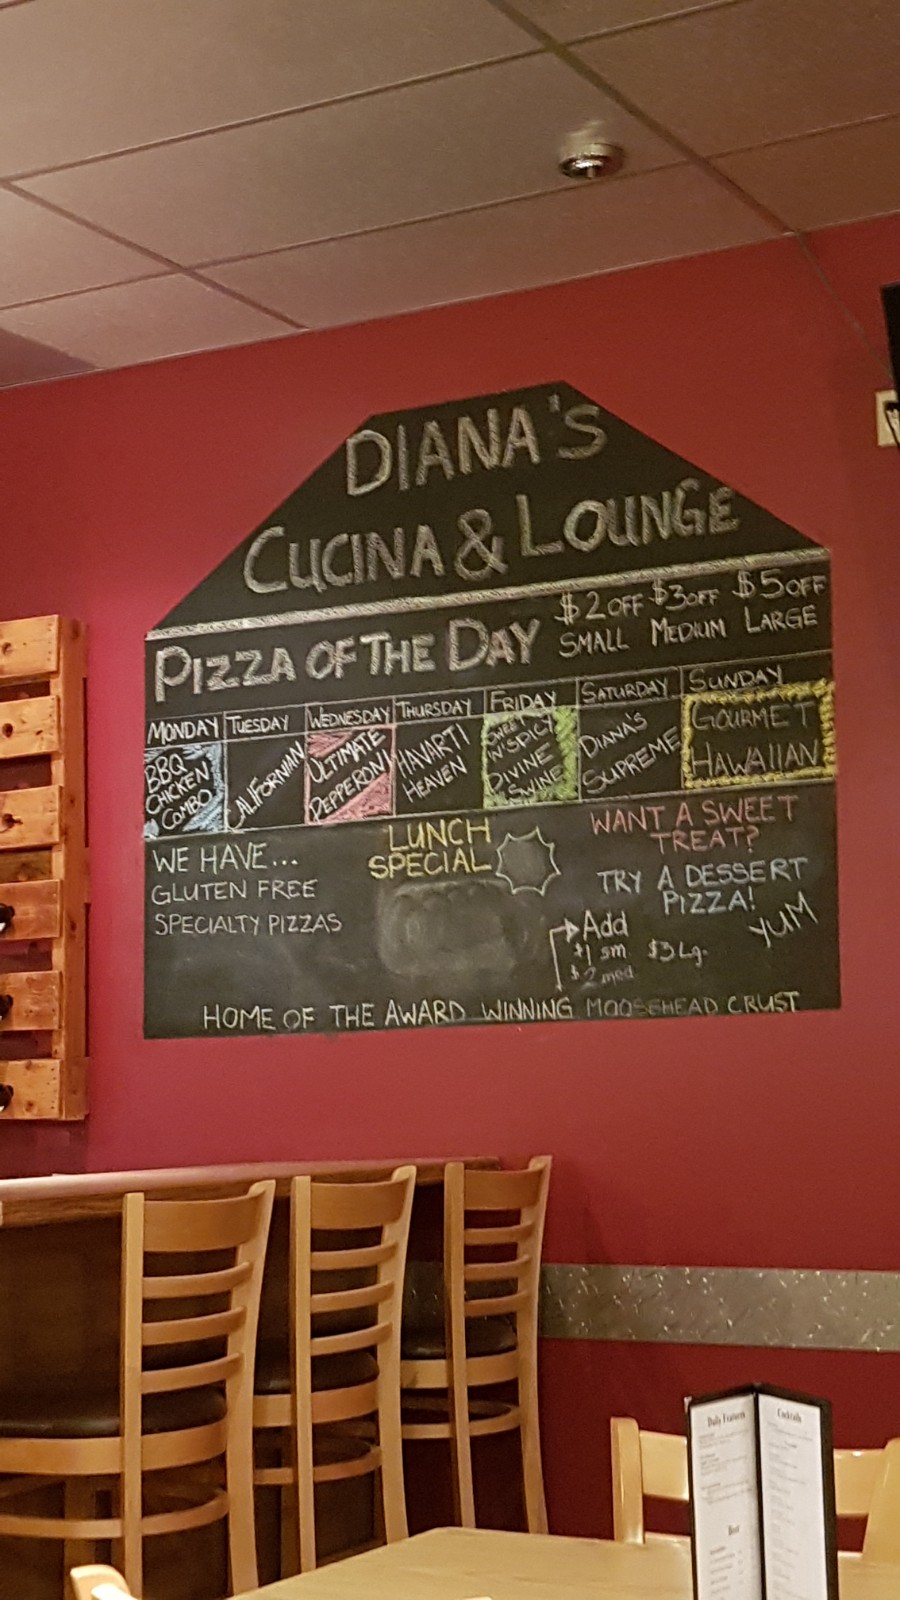 DIANA'S
CUCINA & LOUNGE
PIZZA OF THE DAY
$2 OFF SMALL
$3 OFF MEDIUM
$5 OFF LARGE
MONDAY
BBQ
CHICKEN
COMBO
TUESDAY
CALIFORNIAN
WEDNESDAY
ULTIMATE
PEPPERONI
THURSDAY
HAVARTI
HEAVEN
FRIDAY
SWEET
N'SPICY
DIVINE
SWINE
SATURDAY
DIANA'S
SUPREME
SUNDAY
GOURMET
HAWAIIAN
WE HAVE...
GLUTEN FREE
SPECIALTY PIZZAS
LUNCH
SPECIAL
WANT A SWEET
TREAT?
TRY A DESSERT
PIZZA!
YUM
Add
$1 sm $3 Lg.
$2 med
HOME OF THE AWARD WINNING MOOSEHEAD CRUST
Daily Features
Beer
Cocktails